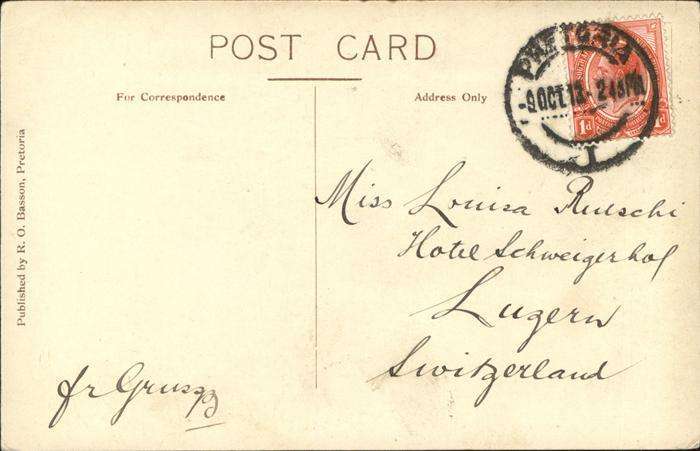 POST CARD
For Correspondence
Address Only
PRETORIA
-9 OCT.13-2 45 PM
1
1d
Published by R. O. Basson, Pretoria
Miss Louisa Rutschi
Hotel Schweigerhof
Luzern
Switzerland
fr Gruss